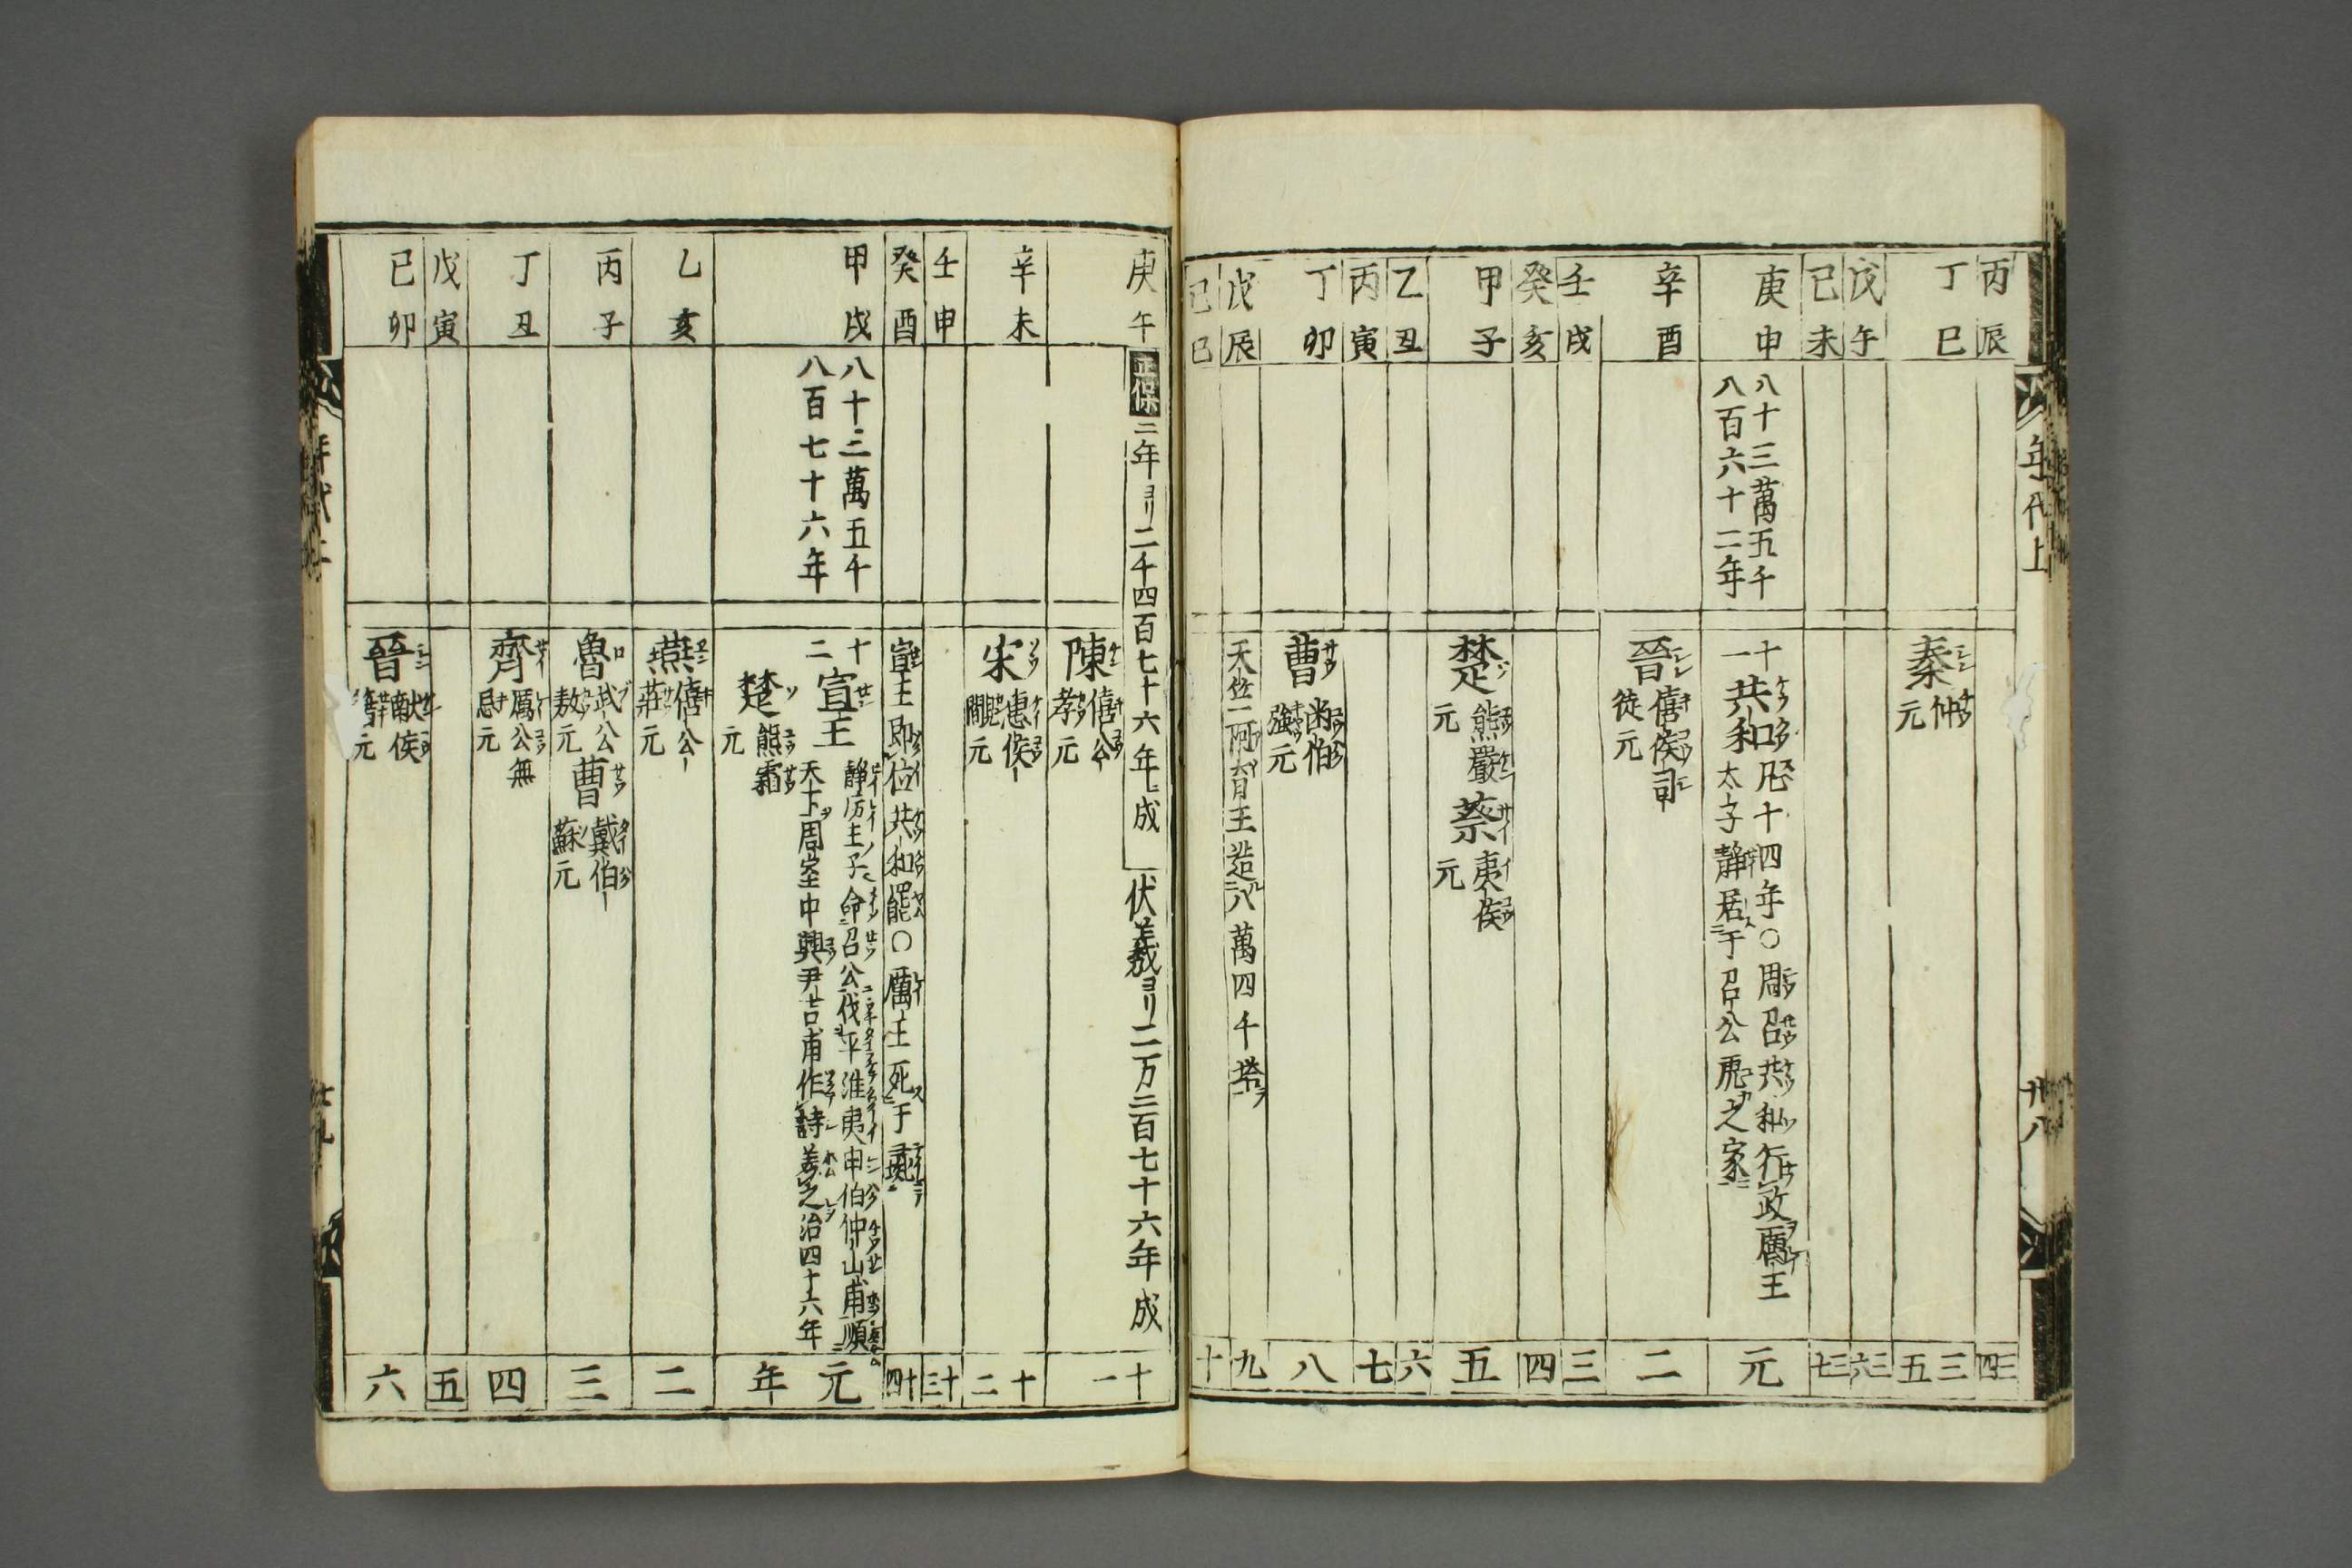 年代上
丗八
丙辰
三四
丁巳
秦 仲
元
三五
戊午
三六
己未
三七
庚申
八十三萬五千
八百六十二年
十一
共和 凡十四年〇周召共和行政厲王
太子靜居于召公虎之家
元
辛酉
晉 僖侯司
徒元
二
壬戌
三
癸亥
四
甲子
楚 熊嚴
元
蔡 夷侯
元
五
乙丑
六
丙寅
七
丁卯
曹 幽伯
強元
八
戊辰
天竺阿育王造八萬四千塔
九
己巳
十
庚午
正保二年ヨリ二千四百七十六年ニ成
伏羲ヨリ二万二百七十六年成
陳 僖公
孝元
十一
辛未
宋 惠侯
覸元
十二
壬申
十三
癸酉
宣王即位共和罷〇厲王死于彘
十四
甲戌
八十三萬五千
八百七十六年
十二
宣王 靜厉王子命召公伐平淮夷申伯仲山甫順
天下周室中興尹吉甫作詩美之治四十六年
楚 熊霜
元
元年
乙亥
燕 僖公
莊元
二
丙子
魯 武公
敖元
曹 戴伯
蘇元
三
丁丑
齊 厲公無
忌元
四
戊寅
五
己卯
晉 獻侯
籍元
六
年代上